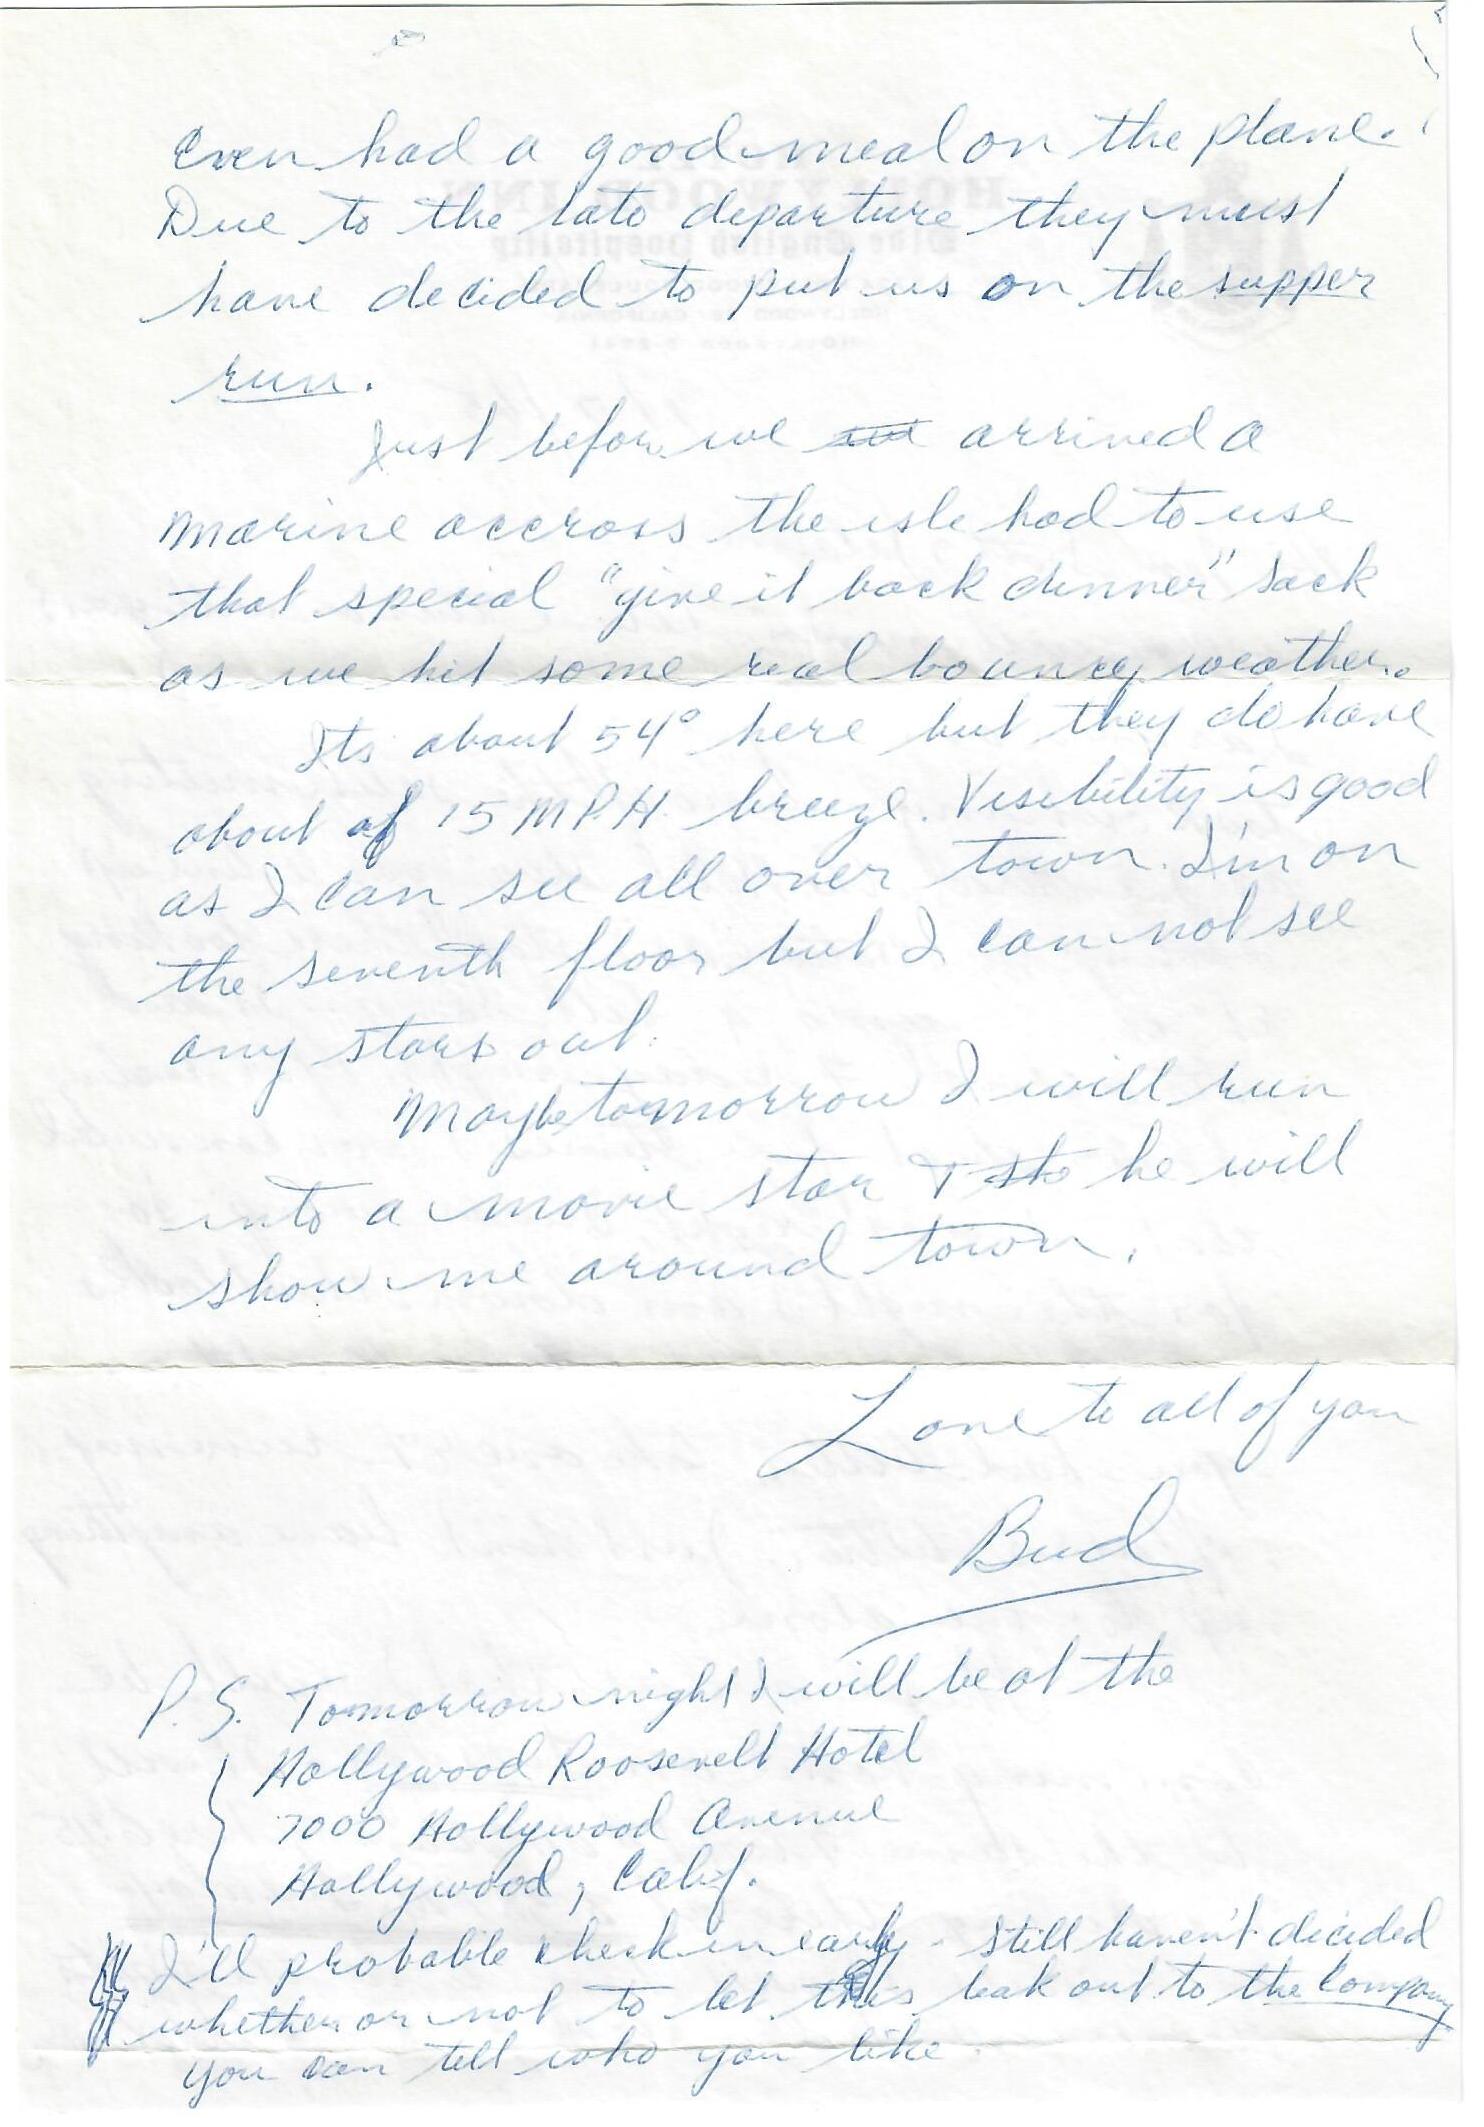 even had a good meal on the plane.
Due to the late departure they must
have decided to put us on the supper
run.
Just before we arrived a
marine accross the isle had to use
that special "give it back dinner" sack
as we hit some real bouncy weather.
Its about 54° here but they do have
about a 15 MPH breeze. Visibility is good
as I can see all over town. I'm on
the seventh floor but I can not see
any stars out.
Maybe tomorrow I will run
into a movie star & he will
show me around town.
Love to all of you
Bud
P.S. Tomorrow night I will be at the
Hollywood Roosevelt Hotel
7000 Hollywood Avenue
Hollywood, Calif.
I'll probable check in early - still haven't decided
whether or not to let this leak out to the Company
you can tell who you like.